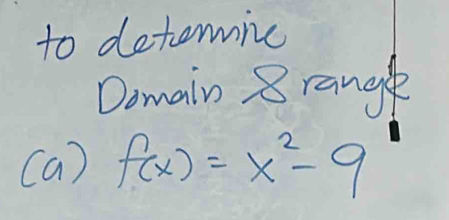 to determine
Domain & range
(a) f(x) = x² - 9